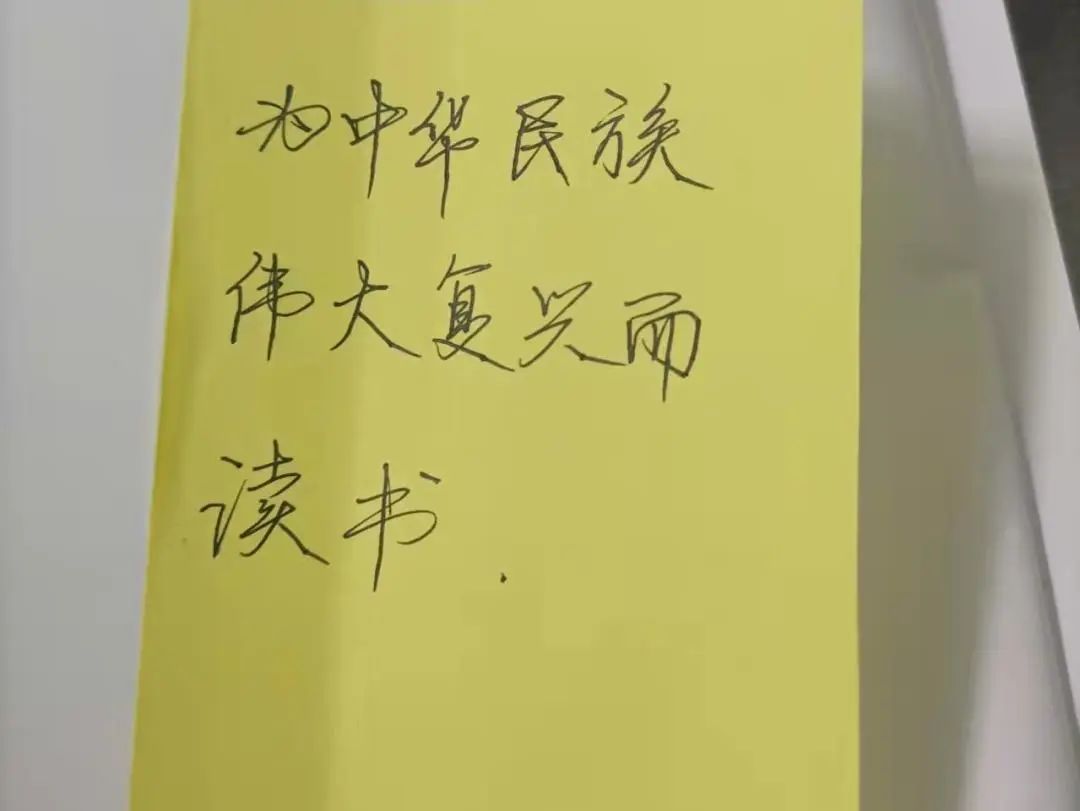 为中华民族
伟大复兴而
读书.